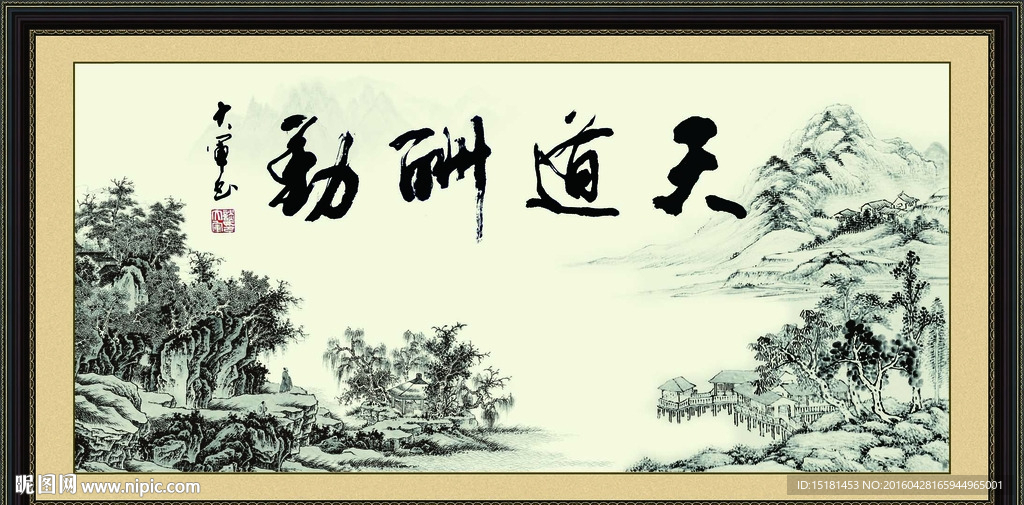 天道酬勤
昵图网 www.nipic.com
ID:15181453 NO:20160428165944965001